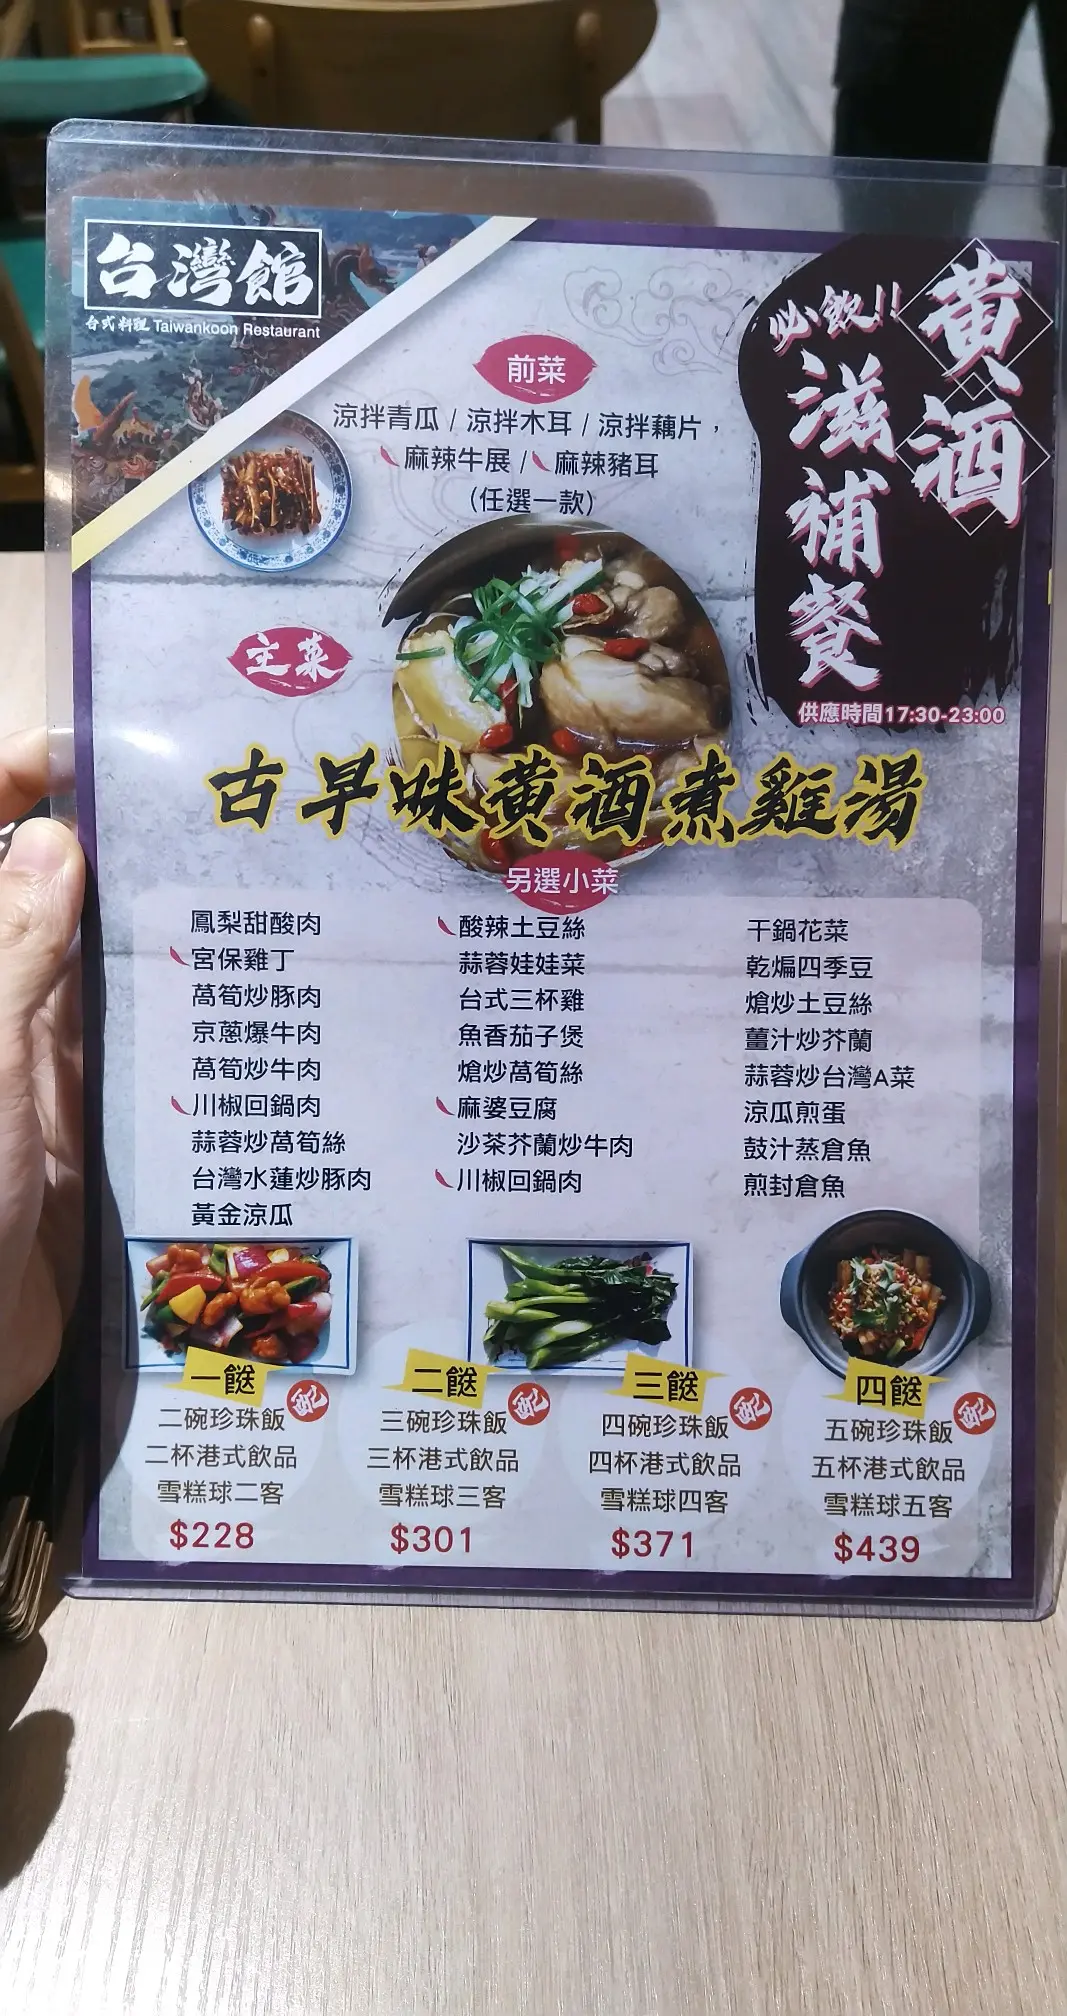 台灣館
台式料理 Taiwankoon Restaurant
黃酒
必飲!!
滋補餐
供應時間17:30-23:00
前菜
涼拌青瓜 / 涼拌木耳 / 涼拌藕片，
麻辣牛展 / 麻辣豬耳
(任選一款)
主菜
古早味黃酒煮雞湯
另選小菜
鳳梨甜酸肉
宮保雞丁
萵筍炒豚肉
京蔥爆牛肉
萵筍炒牛肉
川椒回鍋肉
蒜蓉炒萵筍絲
台灣水蓮炒豚肉
黃金涼瓜
酸辣土豆絲
蒜蓉娃娃菜
台式三杯雞
魚香茄子煲
熗炒萵筍絲
麻婆豆腐
沙茶芥蘭炒牛肉
川椒回鍋肉
干鍋花菜
乾煸四季豆
熗炒土豆絲
薑汁炒芥蘭
蒜蓉炒台灣A菜
涼瓜煎蛋
鼓汁蒸倉魚
煎封倉魚
一餸
二碗珍珠飯
二杯港式飲品
雪糕球二客
$228
二餸
三碗珍珠飯
三杯港式飲品
雪糕球三客
$301
三餸
四碗珍珠飯
四杯港式飲品
雪糕球四客
$371
四餸
五碗珍珠飯
五杯港式飲品
雪糕球五客
$439